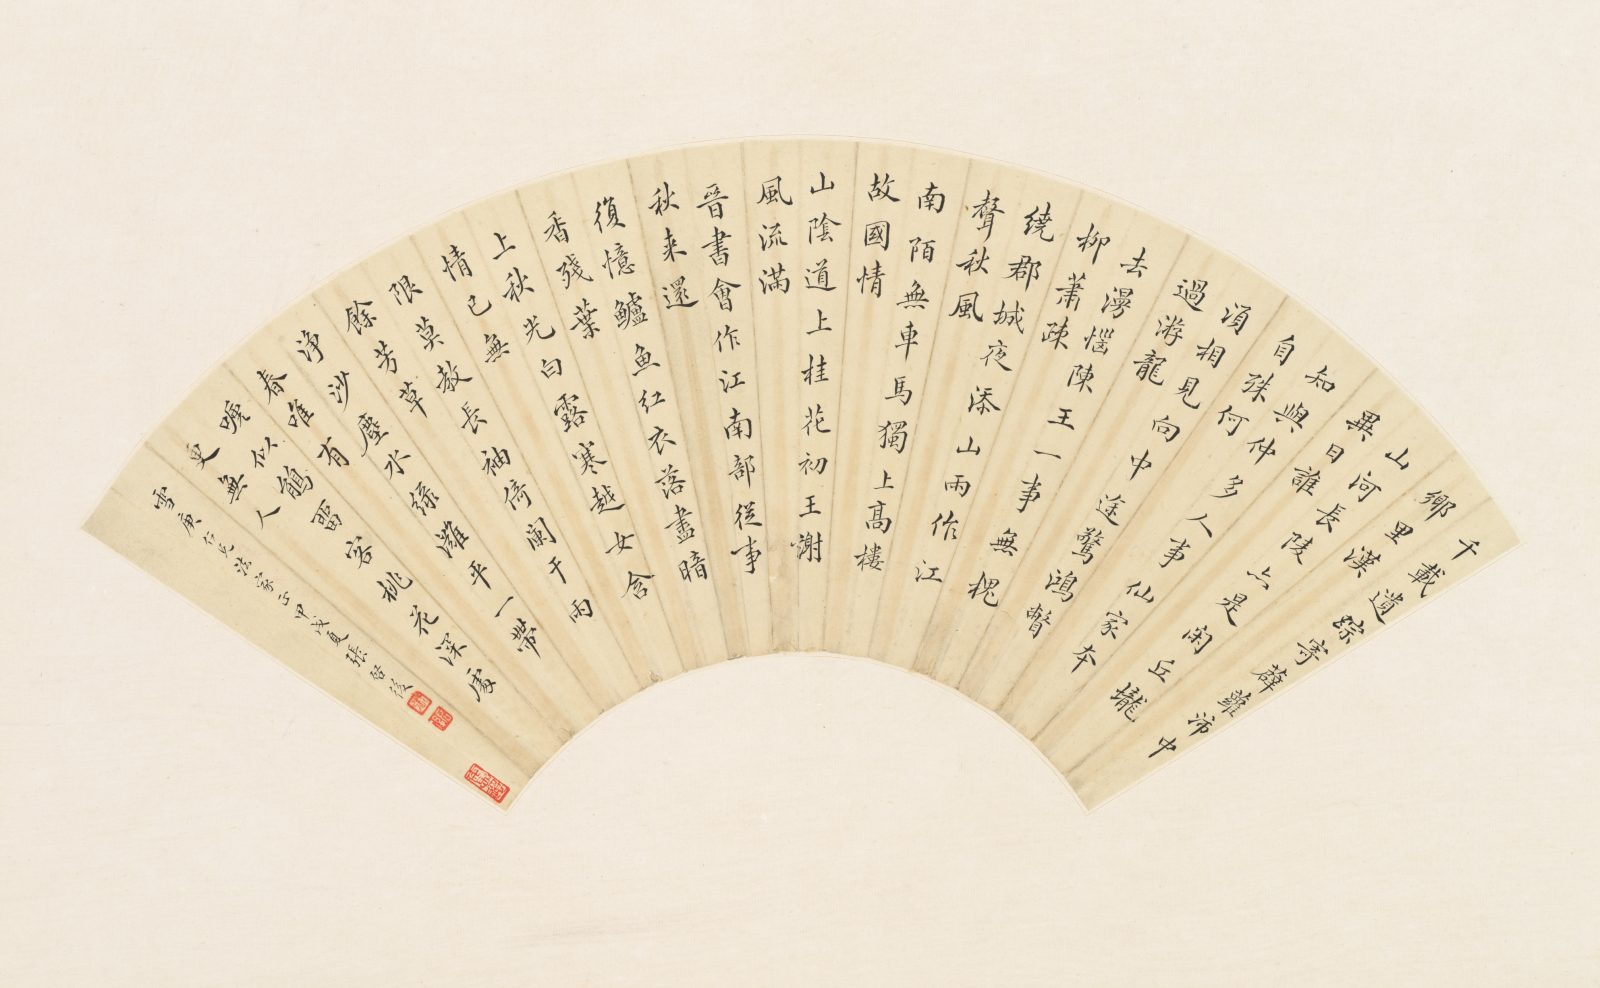 千載遺踪寄薜蘿沛中
鄉里漢
山河長陵亦是閑丘壠
異日誰
知與仲多人事仙家本
自殊何
須相見向中途驚鴻瞥
過游龍
去漫惱陳王一事無槐
柳蕭疎
繞郡城夜添山雨作江
聲秋風
南陌無車馬獨上高樓
故國情
山陰道上桂花初王謝
風流滿
晉書會作江南部從事
秋来還
復憶鱸魚紅衣落盡暗
香殘葉
上秋光白露寒越女含
情已無
限莫教長袖倚闌干雨
餘芳草
淨沙塵水綠灘平一帶
春唯有
嗁似鵑畱客桃花深處
更無人
雪庚仁兄法家正甲戌夏張啓後